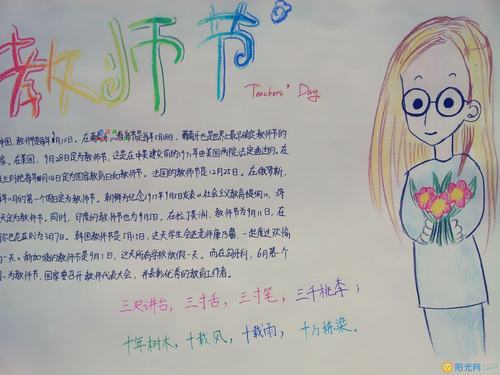 教师节
Teachers' Day
中国,教师节是每年9月10日。在葡萄牙,教师节是每年5月18日。葡萄牙也是世界上最早确定教师节的
家。在美国,9月28日定为教师节,这是在中美建交前的1971年由美国两院法定通过的。在
法国的教师节是12月25日。在俄罗斯,
月的第一个周日定为教师节。朝鲜为纪念1977年9月5日发表《社会主义教育提纲》,将
天定为教师节。同时,印度的教师节也为9月5日。在拉丁美洲,教师节为9月11日。在
尔巴尼亚则为3月7日。韩国教师节是5月15日,这天学生会送老师康乃馨,一起度过欢愉
的一天。新加坡的教师节是9月1日,这天所有学校放假一天。而在匈牙利,6月第一个
为教师节,国家要召开教师代表大会,并表彰优秀的教育工作者。
三尺讲台,三寸舌,三寸笔,三千桃李;
十年树木,十载风,十载雨,十万栋梁。
阳光网